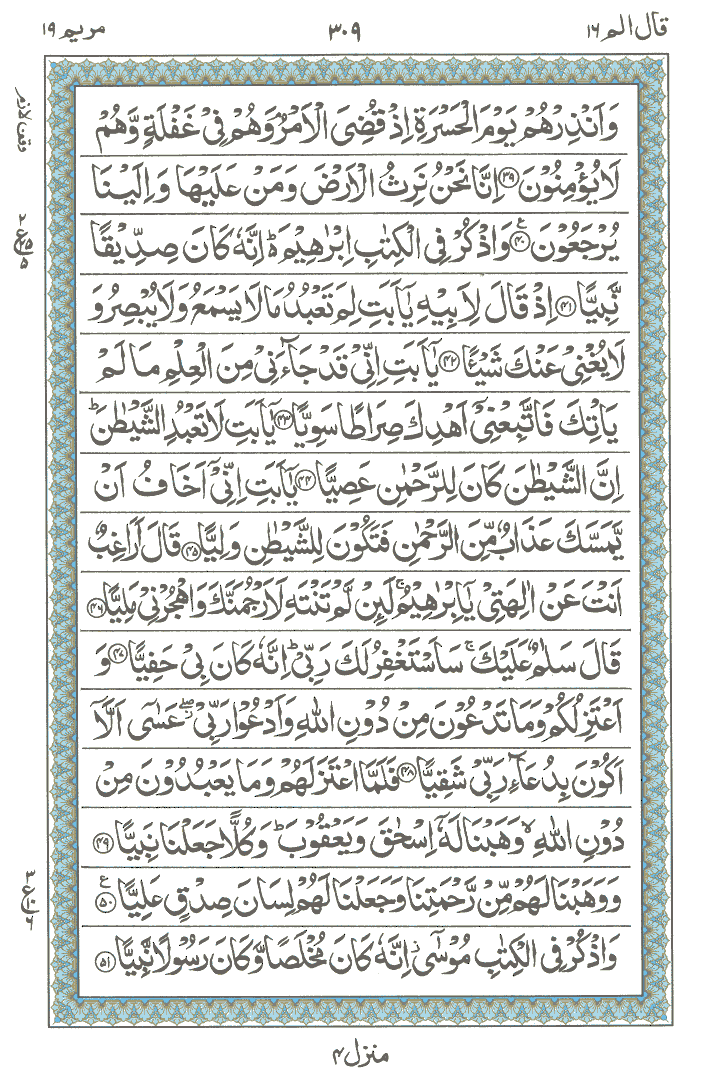 قال الم ١٦ ٣٠٩ مريم ١٩
وَاَنْذِرْهُمْ يَوْمَ الْحَسْرَةِ اِذْ قُضِىَ الْاَمْرُ ۘ وَهُمْ فِىْ غَفْلَةٍ وَّهُمْ
لَا يُؤْمِنُوْنَ ﴿٣٩﴾ اِنَّا نَحْنُ نَرِثُ الْاَرْضَ وَمَنْ عَلَيْهَا وَاِلَيْنَا
يُرْجَعُوْنَ ﴿٤٠﴾ وَاذْكُرْ فِى الْكِتٰبِ اِبْرٰهِيْمَ ۬ؕ اِنَّهٗ كَانَ صِدِّيْقًا
نَّبِيًّا ﴿٤١﴾ اِذْ قَالَ لِاَبِيْهِ يٰۤاَبَتِ لِمَ تَعْبُدُ مَا لَا يَسْمَعُ وَلَا يُبْصِرُ وَ
لَا يُغْنِىْ عَنْكَ شَيْـًٔا ﴿٤٢﴾ يٰۤاَبَتِ اِنِّىْ قَدْ جَآءَنِىْ مِنَ الْعِلْمِ مَا لَمْ
يَاْتِكَ فَاتَّبِعْنِىْۤ اَهْدِكَ صِرَاطًا سَوِيًّا ﴿٤٣﴾ يٰۤاَبَتِ لَا تَعْبُدِ الشَّيْطٰنَ ؕ
اِنَّ الشَّيْطٰنَ كَانَ لِلرَّحْمٰنِ عَصِيًّا ﴿٤٤﴾ يٰۤاَبَتِ اِنِّىْۤ اَخَافُ اَنْ
يَّمَسَّكَ عَذَابٌ مِّنَ الرَّحْمٰنِ فَتَكُوْنَ لِلشَّيْطٰنِ وَلِيًّا ﴿٤٥﴾ قَالَ اَرَاغِبٌ
اَنْتَ عَنْ اٰلِهَتِىْ يٰۤاِبْرٰهِيْمُ ۚ لَئِنْ لَّمْ تَنْتَهِ لَاَرْجُمَنَّكَ وَاهْجُرْنِىْ مَلِيًّا ﴿٤٦﴾
قَالَ سَلٰمٌ عَلَيْكَ ۚ سَاَسْتَغْفِرُ لَكَ رَبِّىْ ؕ اِنَّهٗ كَانَ بِىْ حَفِيًّا ﴿٤٧﴾ وَ
اَعْتَزِلُكُمْ وَمَا تَدْعُوْنَ مِنْ دُوْنِ اللّٰهِ وَاَدْعُوْا رَبِّىْ ۖ عَسٰۤى اَلَّاۤ
اَكُوْنَ بِدُعَآءِ رَبِّىْ شَقِيًّا ﴿٤٨﴾ فَلَمَّا اعْتَزَلَهُمْ وَمَا يَعْبُدُوْنَ مِنْ
دُوْنِ اللّٰهِ ۙ وَهَبْنَا لَهٗۤ اِسْحٰقَ وَيَعْقُوْبَ ؕ وَكُلًّا جَعَلْنَا نَبِيًّا ﴿٤٩﴾
وَوَهَبْنَا لَهُمْ مِّنْ رَّحْمَتِنَا وَجَعَلْنَا لَهُمْ لِسَانَ صِدْقٍ عَلِيًّا ﴿٥٠﴾
وَاذْكُرْ فِى الْكِتٰبِ مُوْسٰٓى اِنَّهٗ كَانَ مُخْلَصًا وَّكَانَ رَسُوْلًا نَّبِيًّا ﴿٥١﴾
منزل ٤